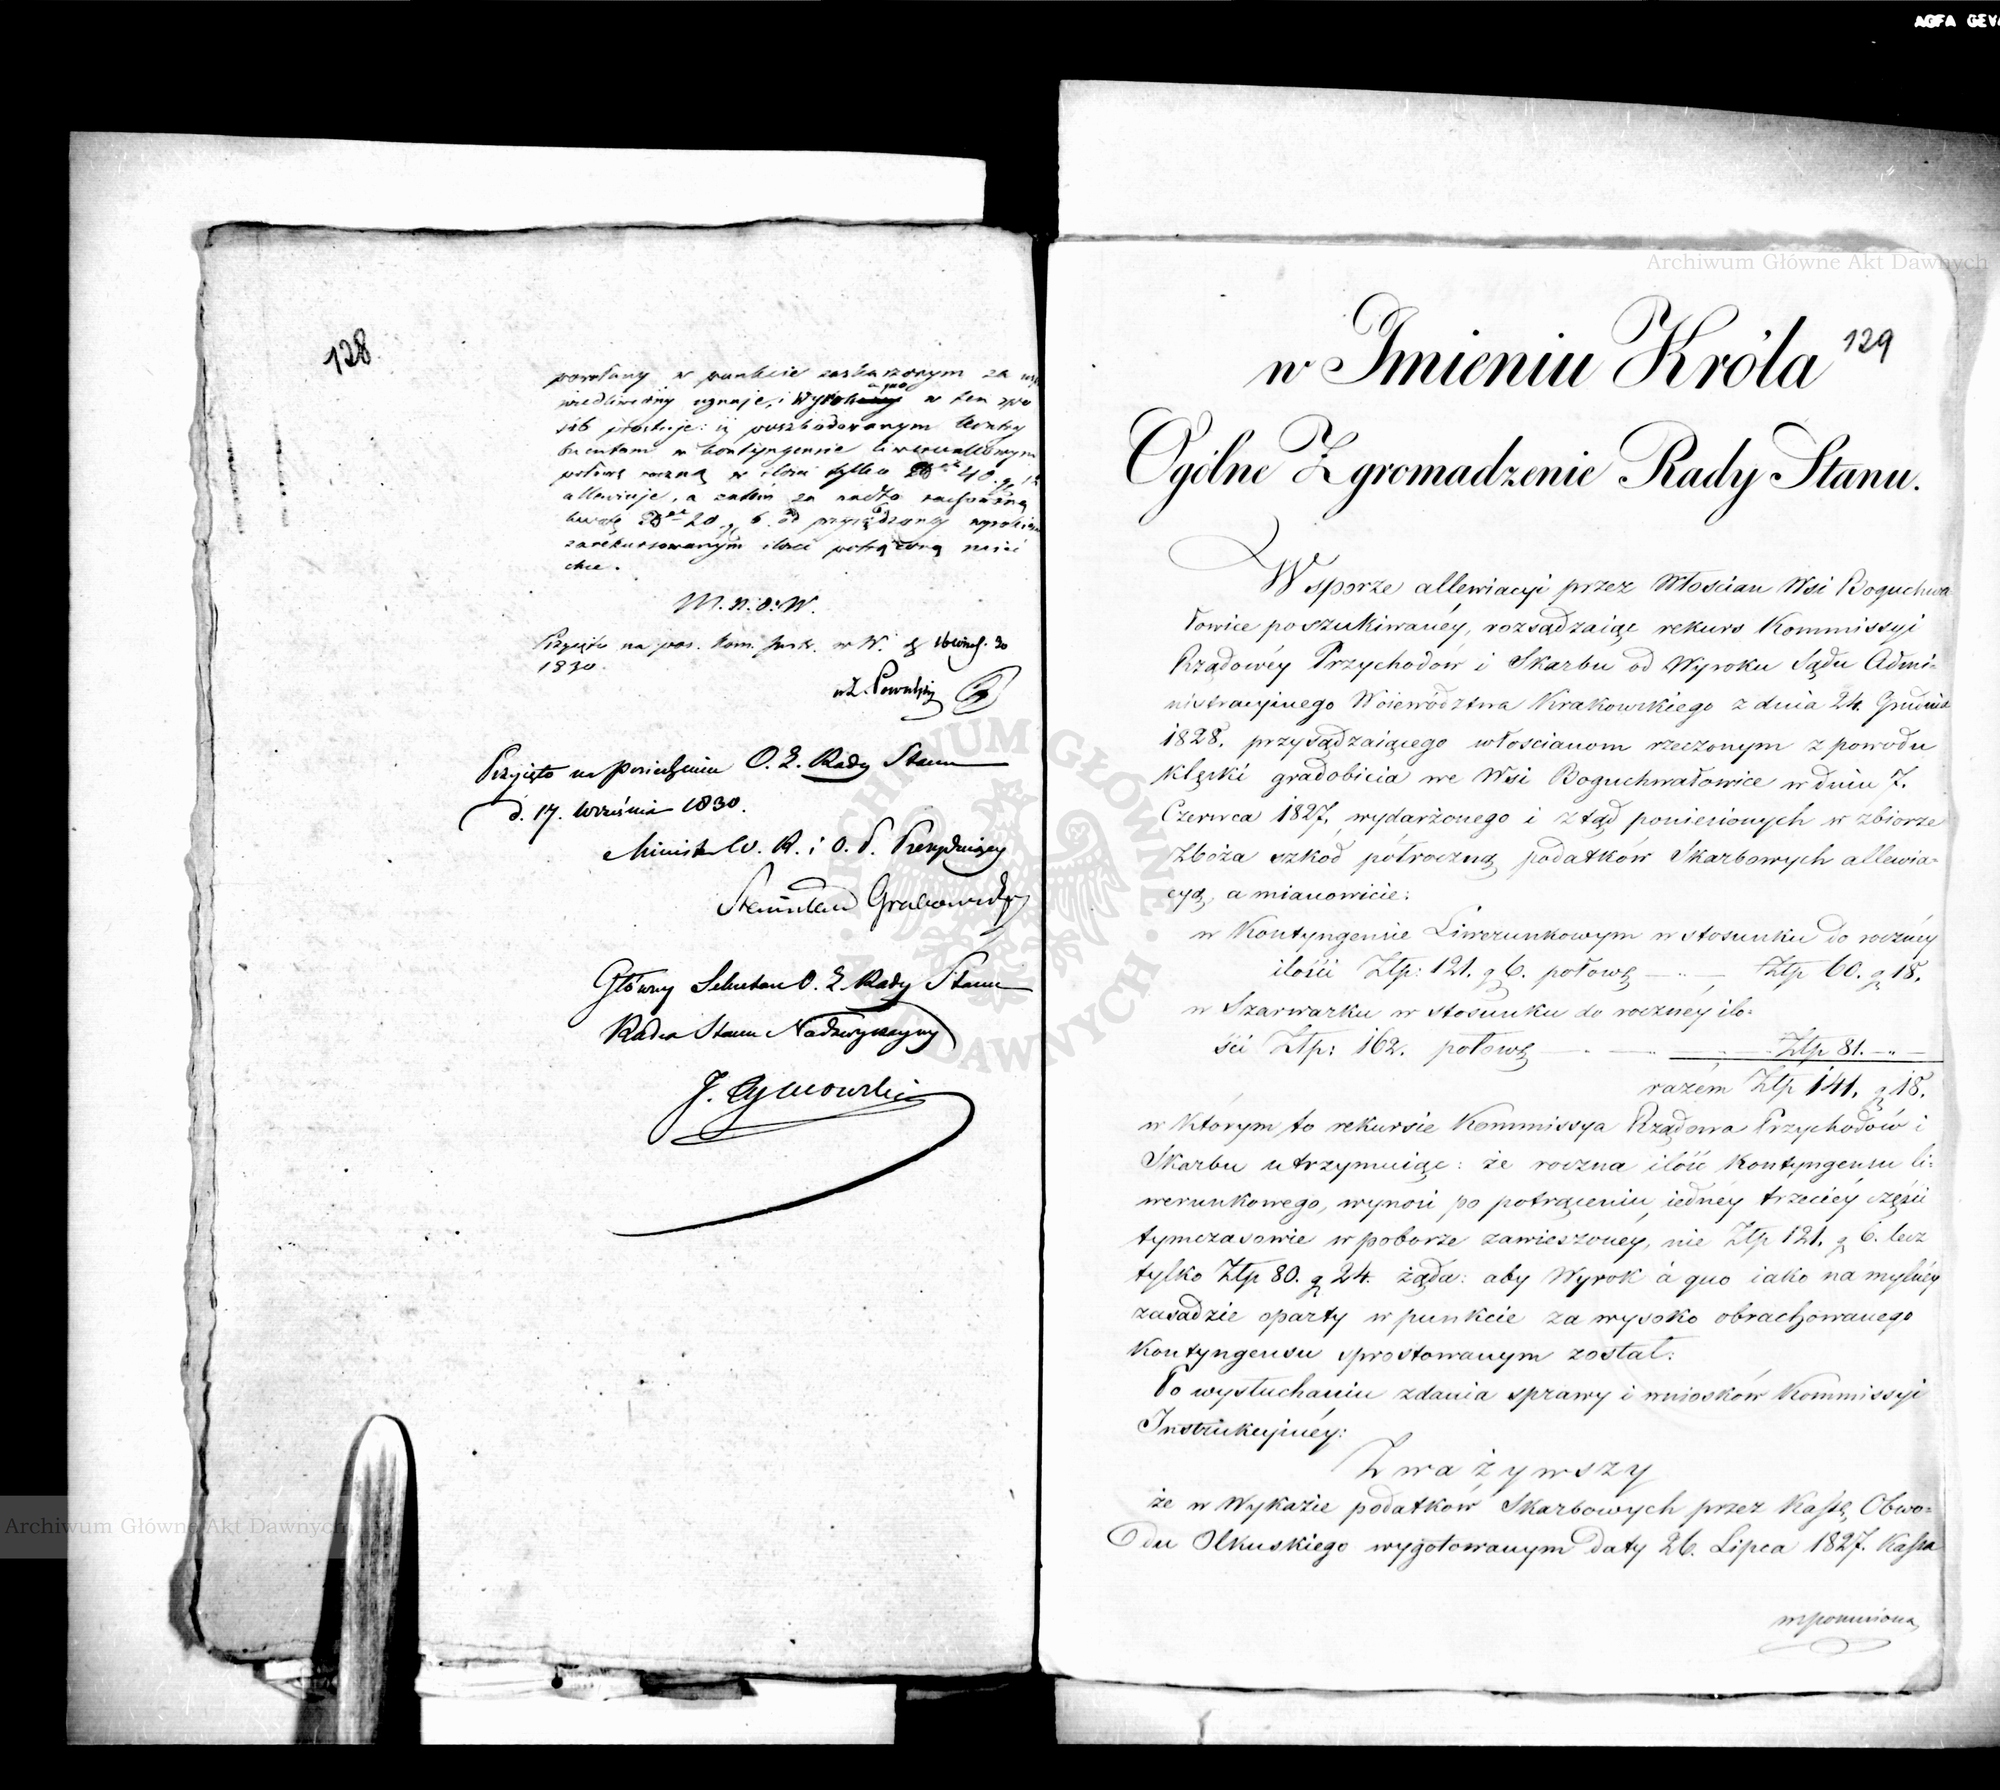 AGFA GEVA
Archiwum Główne Akt Dawnych
128
powołany w punkcie zaskarżonym za
wiedliwiony uznaje, i Wyrok a quo w ten spo
sób prostuje: iż poszkodowanym Kontry
buentom w kontyngensie liwerunkowym
połowę roczną w ilości tylko 40. g. 12
allewiuje, a zatem za nadto rachowaną
kwotę 20 g 6. od przysądzonej wyrokiem
zarekursowanym ilości potrąconą mieć
chce.
M. n. o. W.
Przyjęto na pos. Kom. Instr. w W. d. 16 Wrześ. 30
1830.
Przyjęto na posiedzeniu O. Z. Rady Stanu
d. 17. Września 1830.
Minister W. R. i O. P. Prezydujący
Stanisław Grabowski
Główny Sekretarz O. Z. Rady Stanu
Radca Stanu Nadzwyczajny
J. Tymowski
129
w Imieniu Króla
Ogólne Zgromadzenie Rady Stanu.
W sporze allewiacyi przez Włościan Wsi Boguchwa
łowice poszukiwanéy, rozsądzaiąc rekurs Kommissyi
Rządowéy Przychodów i Skarbu od Wyroku Sądu Admi-
nistracyinego Woiewództwa Krakowskiego z dnia 24. Grudnia
1828. przysądzaiącego włoscianom rzeczonym z powodu
klęski gradobicia we Wsi Boguchwałowice w dniu 7.
Czerwca 1827, wydarzonego i ztąd poniesionych w zbiorze
Zboża szkod półroczną podatków Skarbowych allewia-
cyą, a mianowicie:
w Kontyngensie Liwerunkowym w stosunku do roczney
ilości Ztp: 121. g 6. połowę — Ztp 60. g 18.
w Szarwarku w stosunku do roczney ilo-
ści Ztp: 162. połowę — Ztp 81. — „ —
razém Ztp 141. g 18.
w którym to rekursie Kommissya Rządowa Przychodów i
Skarbu utrzymuiąc: że roczna ilość Kontyngensu li-
werunkowego, wynosi po potrąceniu iednéy trzeciéy części
tymczasowie w poborze zawieszonéy, nie Ztp 121. g 6. lecz
tylko Ztp 80. g 24. żąda: aby Wyrok à quo iako na mylnéy
zasadzie oparty w punkcie za wysoko obrachowanego
Kontyngensu sprostowanym został:
Po wysłuchaniu zdania sprawy i wniosków Kommissyi
Instrukcyinéy:
Zważywszy
że w Wykazie podatków Skarbowych przez Kassę Obwo-
du Olkuskiego wygotowanym daty 26. Lipca 1827. Kassa
wspomniona
Archiwum Główne Akt Dawnych
ARCHIWUM GŁÓWNE AKT DAWNYCH